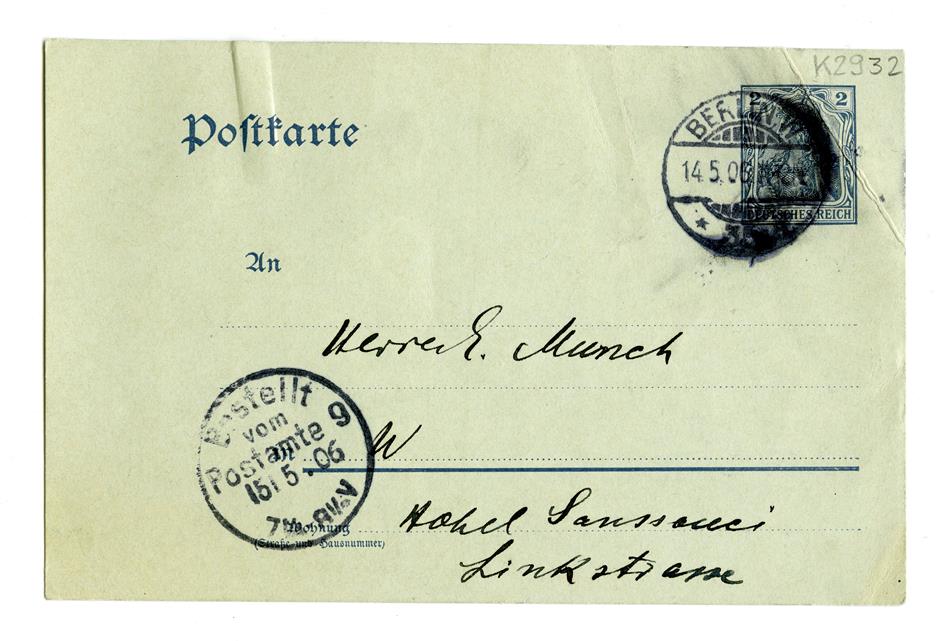 K2932
Postkarte
2 2
BERLIN W
14.5.06
* 35
DEUTSCHES REICH
An
Herrn E. Munch
Bestellt 9
vom
Postamte
15/5.06
in
W
Wohnung
(Straße und Hausnummer)
Hotel Sanssouci
Linkstrasse